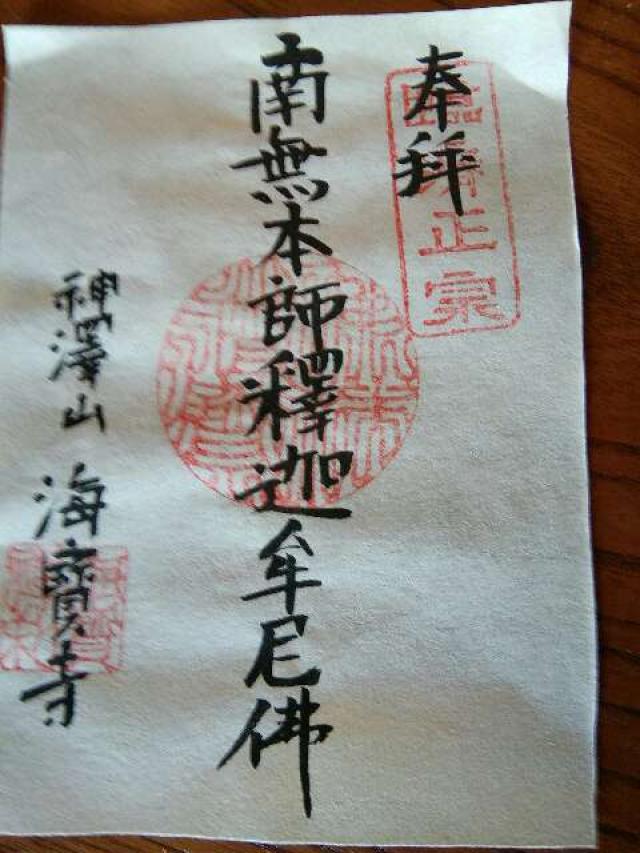 奉拜
臨濟正宗
南無本師釋迦牟尼佛
神澤山 海寶寺